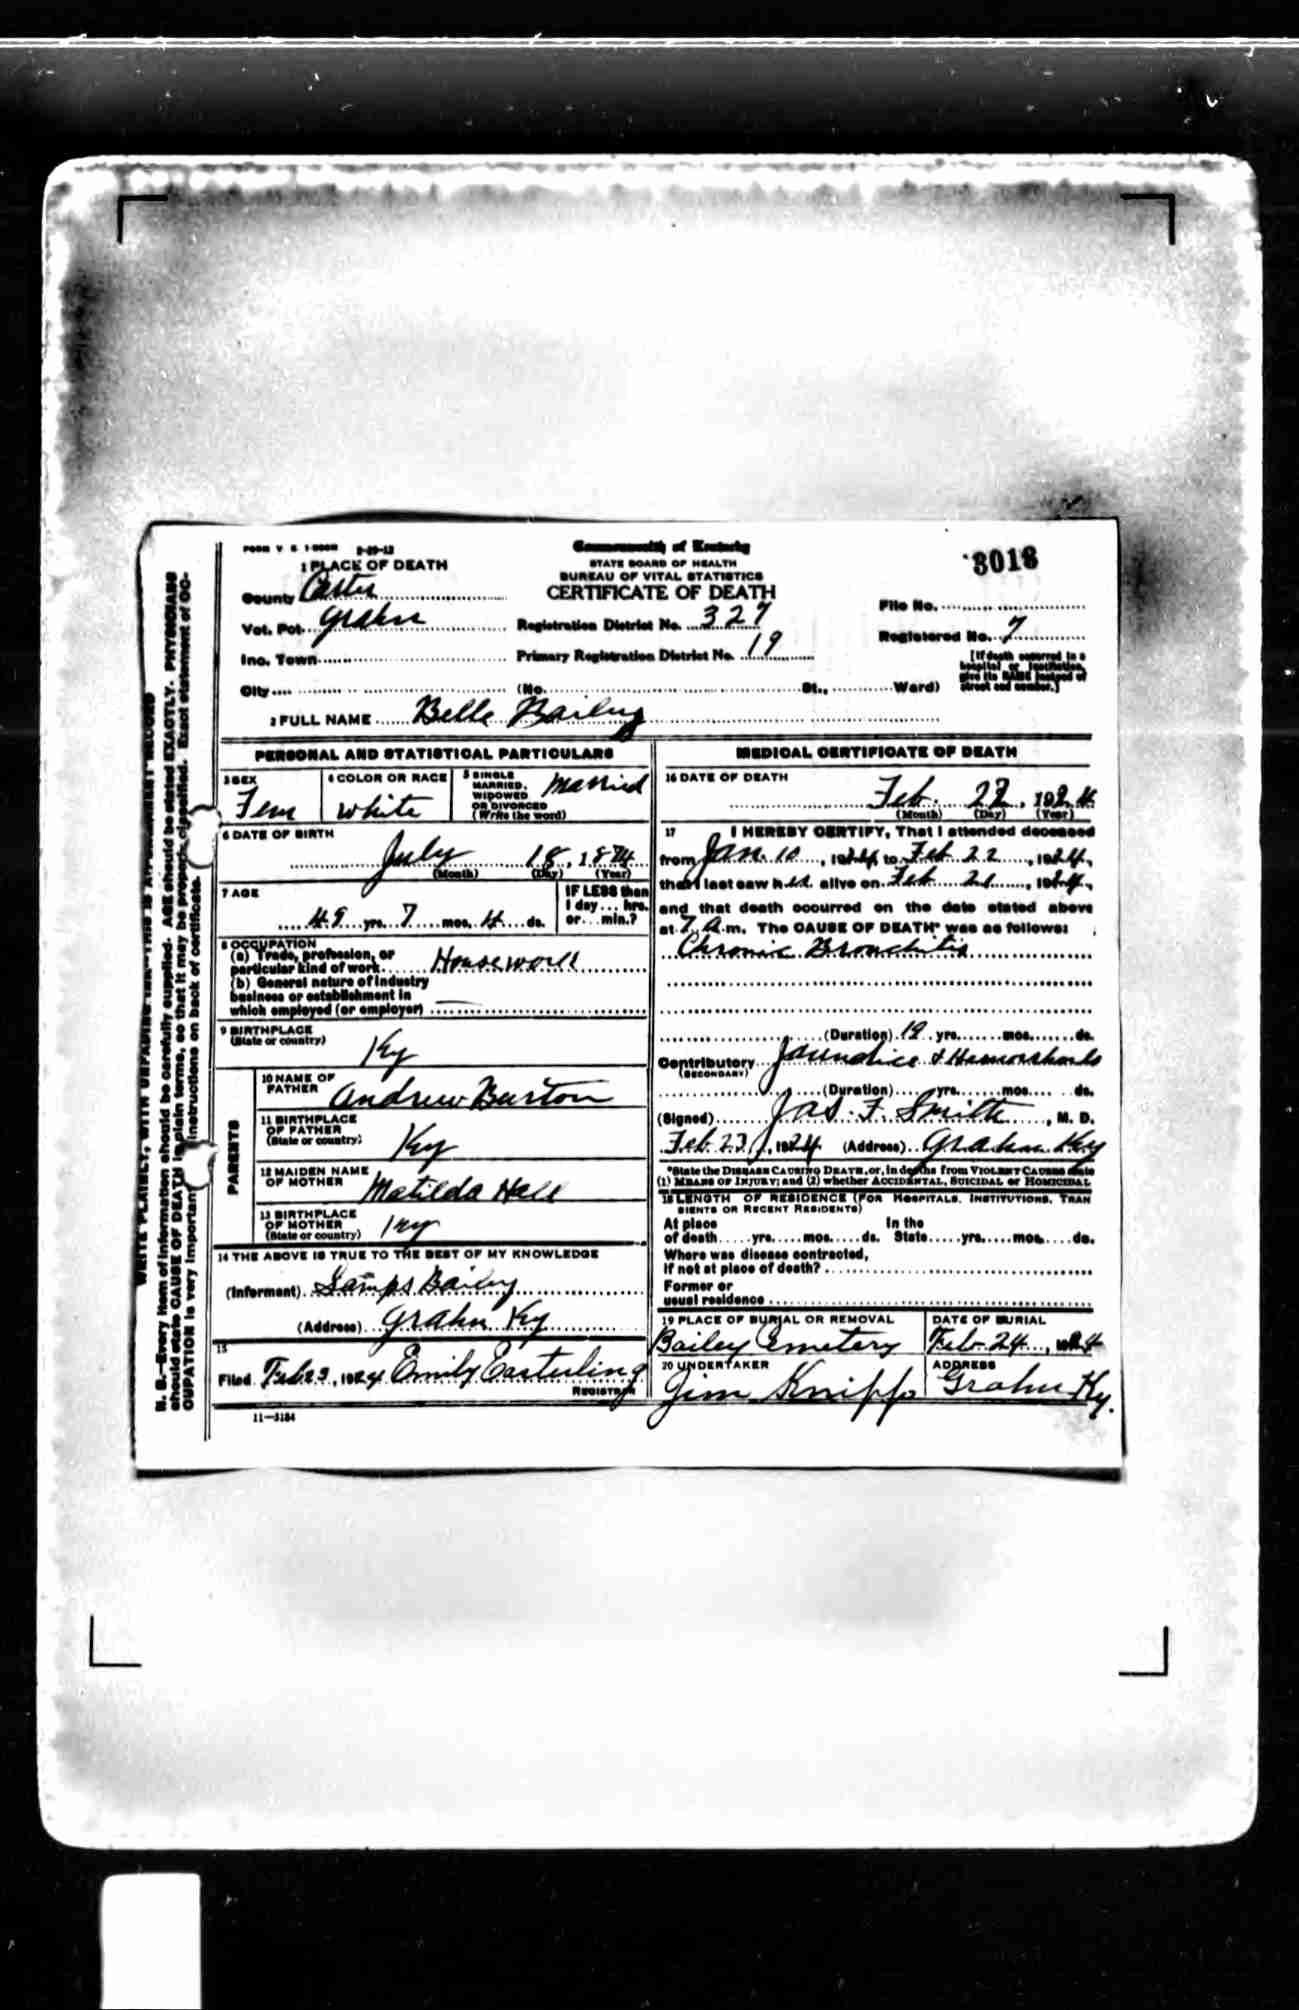 FORM V. S. 1-500M 2-29-12
Commonwealth of Kentucky
STATE BOARD OF HEALTH
BUREAU OF VITAL STATISTICS
CERTIFICATE OF DEATH
3018
1 PLACE OF DEATH
County Carter
Vot. Pct. Grahn
Inc. Town
City (No. St., Ward)
Registration District No. 327
Primary Registration District No. 19
File No.
Registered No. 7
[If death occurred in a
hospital or institution,
give its NAME instead of
street and number.]
2 FULL NAME Belle Bailey
PERSONAL AND STATISTICAL PARTICULARS
3 SEX
Fem
4 COLOR OR RACE
White
5 SINGLE
MARRIED,
WIDOWED
OR DIVORCED
(Write the word)
Married
6 DATE OF BIRTH
July 18, 1874
(Month) (Day) (Year)
7 AGE
49 yrs. 7 mos. 4 ds.
IF LESS than
1 day... hrs.
or... min.?
8 OCCUPATION
(a) Trade, profession, or
particular kind of work Housework
(b) General nature of industry
business or establishment in
which employed (or employer)
9 BIRTHPLACE
(State or country)
Ky
PARENTS
10 NAME OF
FATHER Andrew Burton
11 BIRTHPLACE
OF FATHER
(State or country) Ky
12 MAIDEN NAME
OF MOTHER Matilda Hall
13 BIRTHPLACE
OF MOTHER
(State or country) Ky
14 THE ABOVE IS TRUE TO THE BEST OF MY KNOWLEDGE
(Informant) Samps Bailey
(Address) Grahn Ky
15
Filed Feb 23, 1924 Emily Easterling
REGISTRAR
11-3184
MEDICAL CERTIFICATE OF DEATH
16 DATE OF DEATH
Feb. 22, 1924
(Month) (Day) (Year)
17 I HEREBY CERTIFY, That I attended deceased
from Jan. 10, 1924, to Feb 22, 1924,
that I last saw her alive on Feb 21, 1924,
and that death occurred on the date stated above
at 7 A.m. The CAUSE OF DEATH* was as follows:
Chronic Bronchitis
(Duration) yrs. mos. ds.
Contributory Jaundice &
(SECONDARY)
(Duration) yrs. mos. ds.
(Signed) Jas. F. Smith, M. D.
Feb 23, 1924 (Address) Grahn Ky
*State the DISEASE CAUSING DEATH, or, in deaths from VIOLENT CAUSES state
(1) MEANS OF INJURY; and (2) whether ACCIDENTAL, SUICIDAL or HOMICIDAL
18 LENGTH OF RESIDENCE (FOR HOSPITALS, INSTITUTIONS, TRAN
SIENTS OR RECENT RESIDENTS)
At place In the
of death yrs. mos. ds. State yrs. mos. ds.
Where was disease contracted,
if not at place of death?
Former or
usual residence
19 PLACE OF BURIAL OR REMOVAL
Bailey Cemetery
DATE OF BURIAL
Feb-24, 1924
20 UNDERTAKER
Jim Knipp
ADDRESS
Grahn Ky.
WRITE PLAINLY, WITH UNFADING INK--THIS IS A PERMANENT RECORD
N. B.--Every item of information should be carefully supplied. AGE should be stated EXACTLY. PHYSICIANS
should state CAUSE OF DEATH in plain terms, so that it may be properly classified. Exact statement of OC-
CUPATION is very important. instructions on back of certificate.